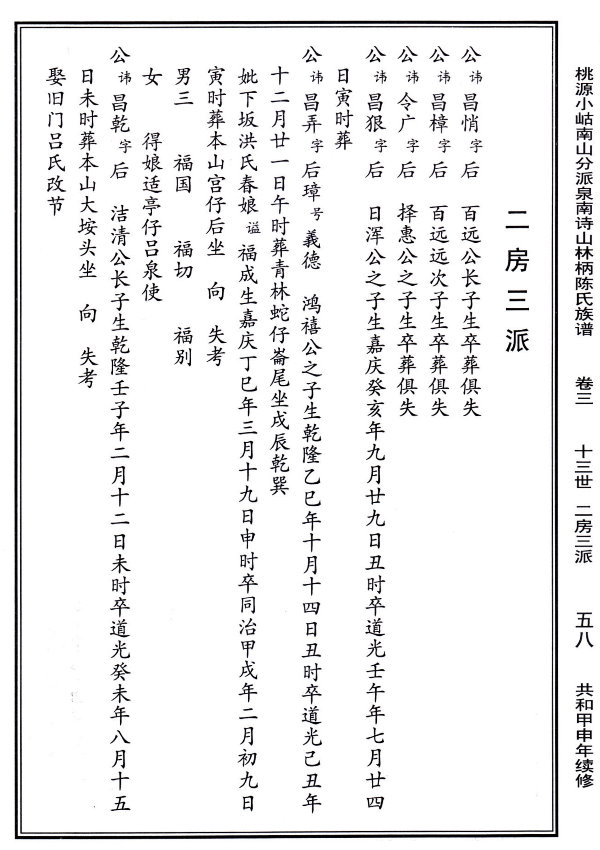 桃源小岵南山分派泉南诗山林柄陈氏族谱 卷三 十三世 二房三派 五八 共和甲申年续修
二房三派
公 讳 昌悄 字 后 百远公长子生卒葬俱失
公 讳 昌樟 字 后 百远远次子生卒葬俱失
公 讳 令广 字 后 择惠公之子生卒葬俱失
公 讳 昌狠 字 后 日浑公之子生嘉庆癸亥年九月廿九日丑时卒道光壬午年七月廿四
日寅时葬
公 讳 昌弄 字 后璋 号 義德 鸿禧公之子生乾隆乙巳年十月十四日丑时卒道光己丑年
十二月廿一日午时葬青林蛇仔崙尾坐戌辰乾巽
妣下坂洪氏春娘 谥 福成生嘉庆丁巳年三月十九日申时卒同治甲戌年二月初九日
寅时葬本山宫仔后坐 向 失考
男三 福国 福切 福别
女 得娘适亭仔吕泉使
公 讳 昌乾 字 后 洁清公长子生乾隆壬子年二月十二日未时卒道光癸未年八月十五
日未时葬本山大垵头坐 向 失考
娶旧门吕氏改节